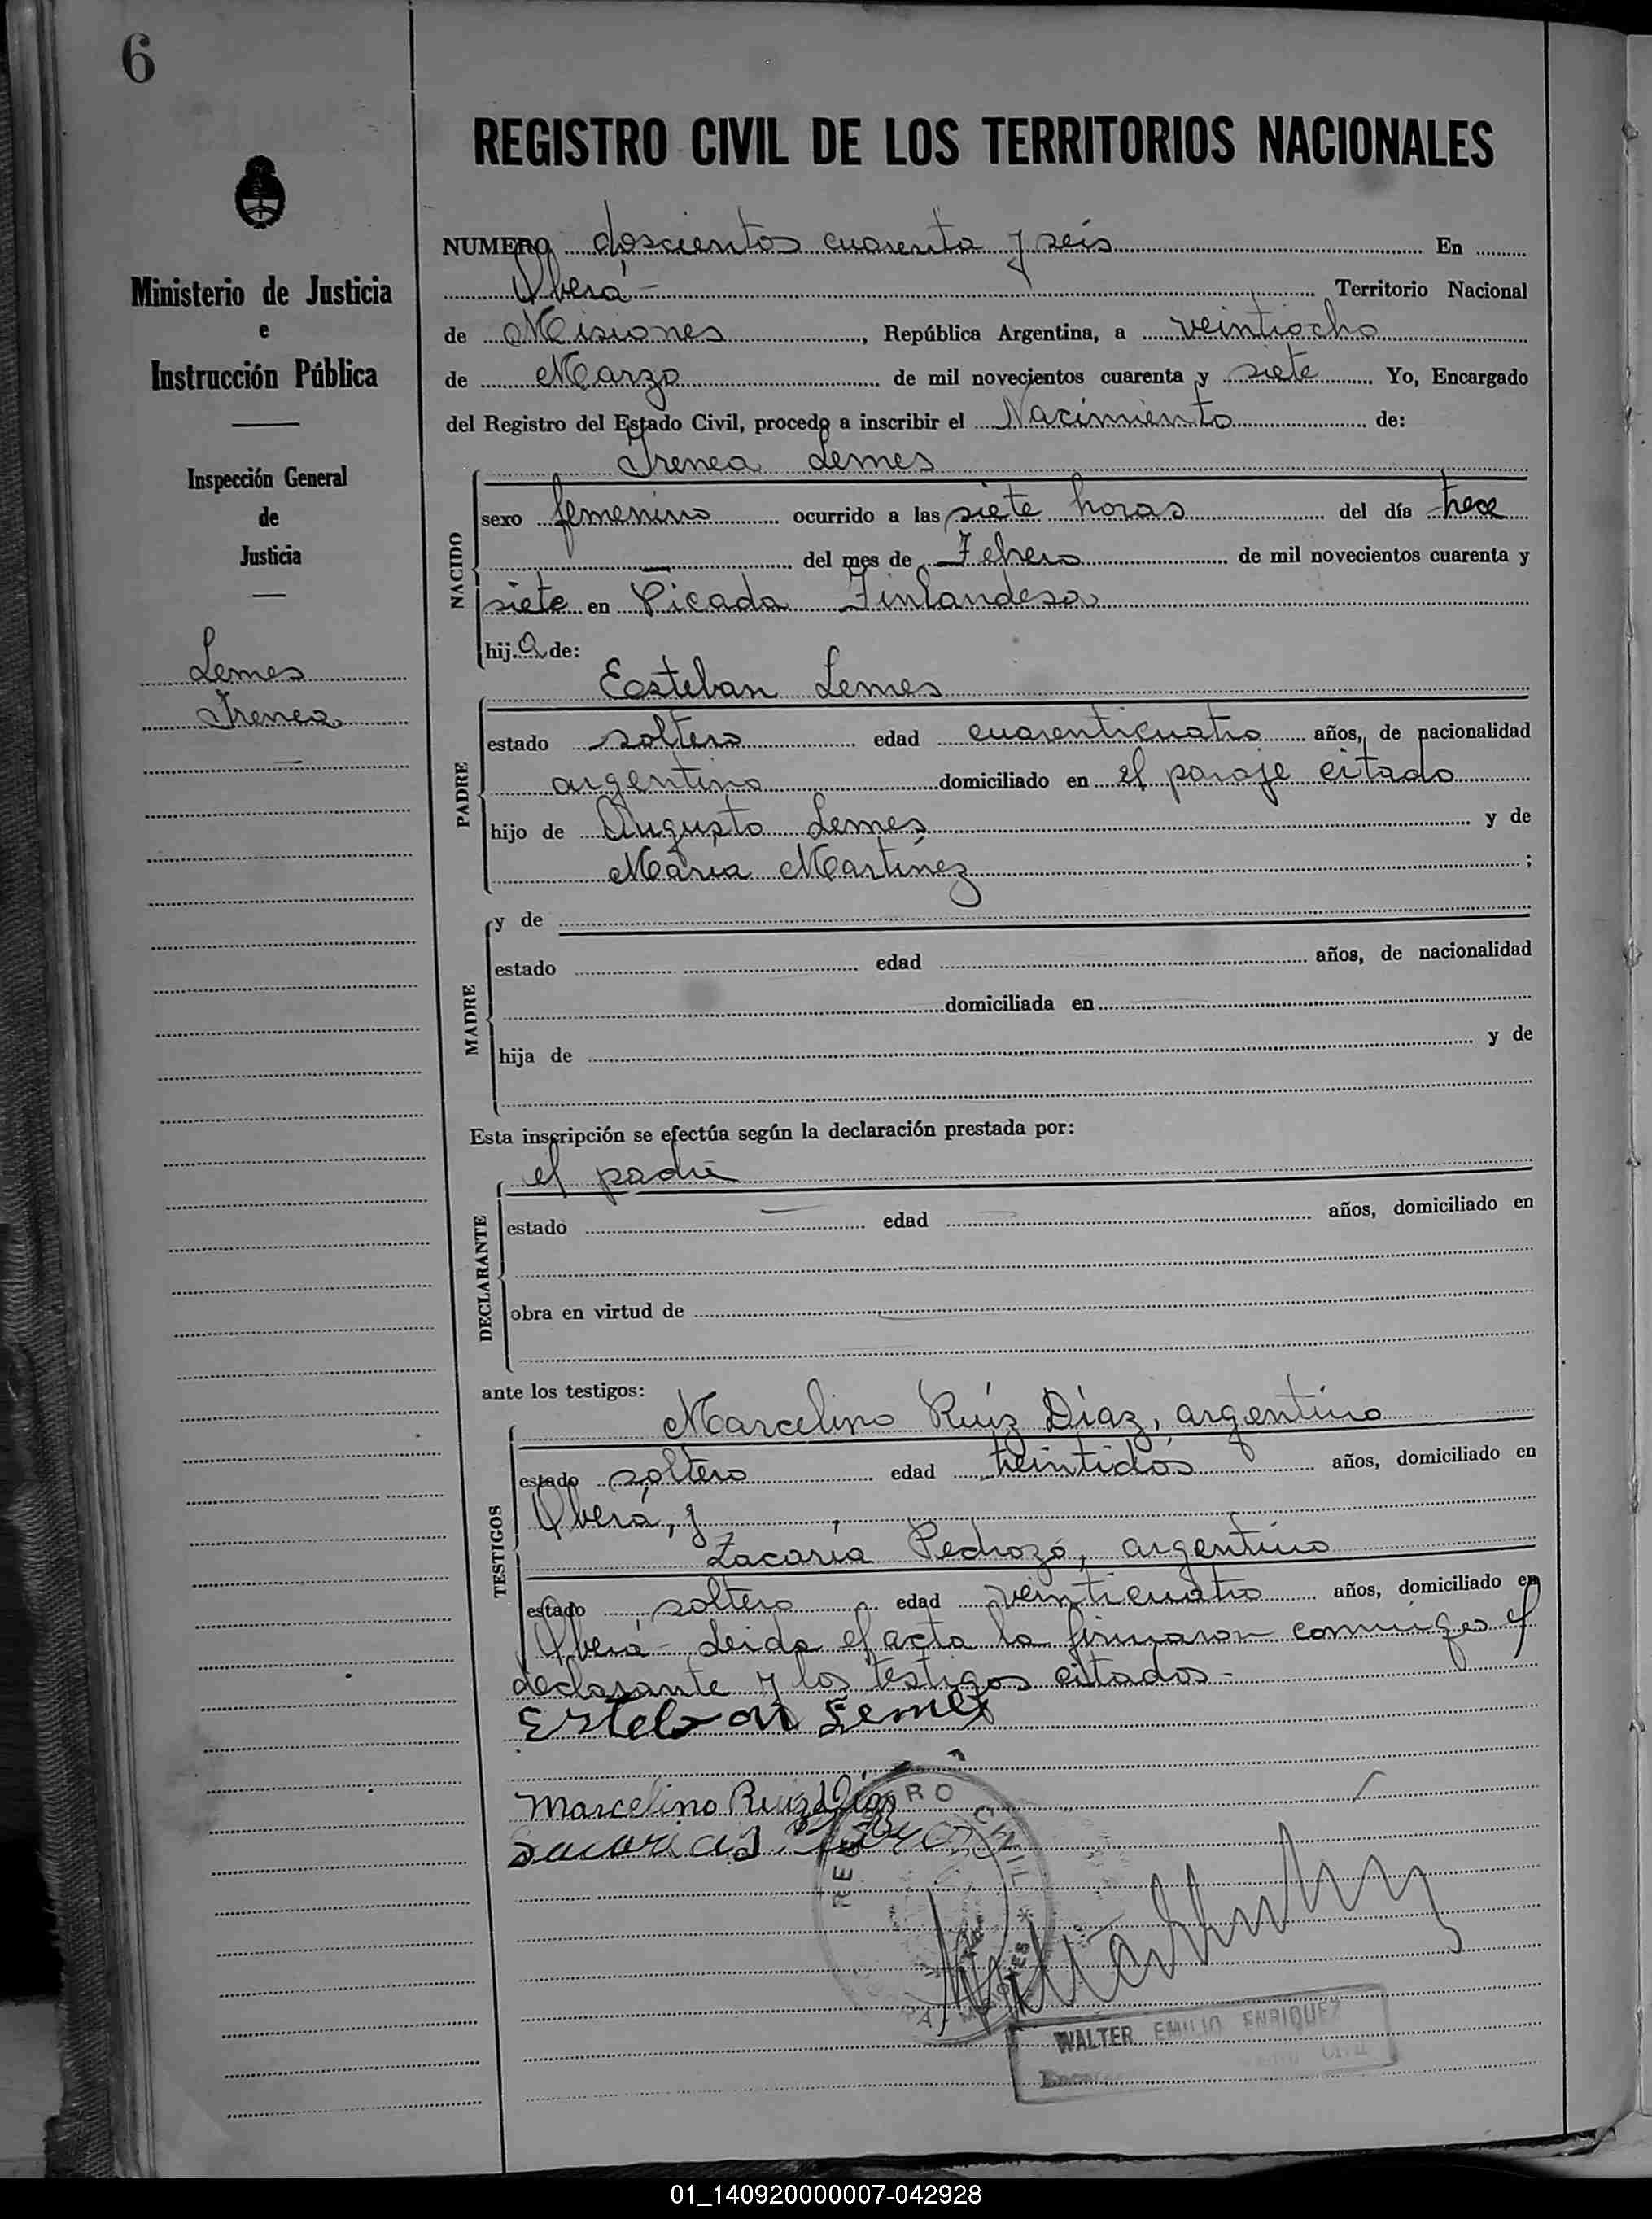 6
REGISTRO CIVIL DE LOS TERRITORIOS NACIONALES
Ministerio de Justicia
e
Instrucción Pública
Inspección General
de
Justicia
Lemes
Irenea
NUMERO doscientos cuarenta y seis En
Oberá - Territorio Nacional
de Misiones, República Argentina, a veintiocho
de Marzo de mil novecientos cuarenta y siete Yo, Encargado
del Registro del Estado Civil, procedo a inscribir el Nacimiento de:
Irenea Lemes
NACIDO
sexo femenino ocurrido a las siete horas del día trece
del mes de Febrero de mil novecientos cuarenta y
siete en Picada Finlandesa
hija de:
Eesteban Lemes
PADRE
estado soltero edad cuarenticuatro años, de nacionalidad
argentino domiciliado en el paraje citado
hijo de Augusto Lemes y de
María Martínez ;
MADRE
y de
estado edad años, de nacionalidad
domiciliada en
hija de y de
Esta inscripción se efectúa según la declaración prestada por:
el padre
DECLARANTE
estado edad años, domiciliado en
obra en virtud de
ante los testigos:
Marcelino Ruíz Díaz, argentino
TESTIGOS
estado soltero edad treintidós años, domiciliado en
Oberá, y
Zacaría Pedrozo, argentino
estado soltero edad veinticuatro años, domiciliado en
Oberá - Leida el acta la firmaron conmigo el
declarante y los testigos citados -
Esteban Lemes
Marcelino Ruiz Diaz
REGISTRO CIVIL
WALTER EMILIO ENRIQUEZ
01_140920000007-042928